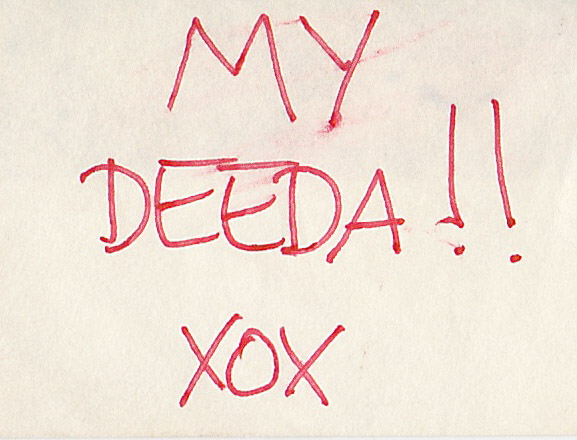 MY
DEEDA!!
XOX